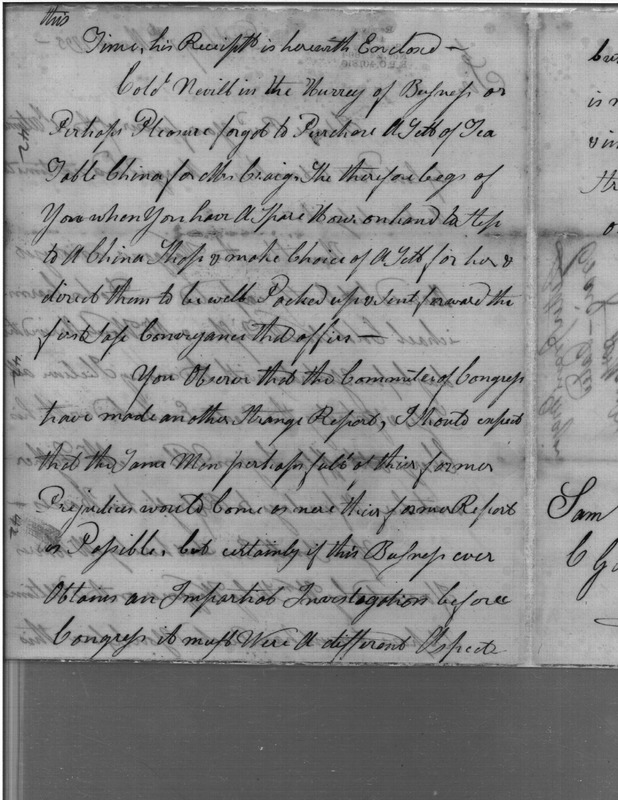 this
Time, his Receipt is herewith Enclosed –
Colo. Nevill in the Hurrey of Business or
Perhaps Pleasure forgot to Purchase A Sett of Tea
Table China for Mrs Craig, She therefore begs of
You when You have A Spare Hour on hand to Step
to A China Shop & make Choice of A Sett for her &
direct them to be well Packed up & Sent forward the
first Safe Conveyance that offirs
You Observe that the Commitee of Congress
have made another Strange Report, I Should expect
that the Same Men perhaps full of thier former
Prejudices would Come as near thier former Report
as Possible, but certainly if this Business ever
Obtains an Impartial Investagation before
Congress it must Were A different Aspect
is
Sam
C